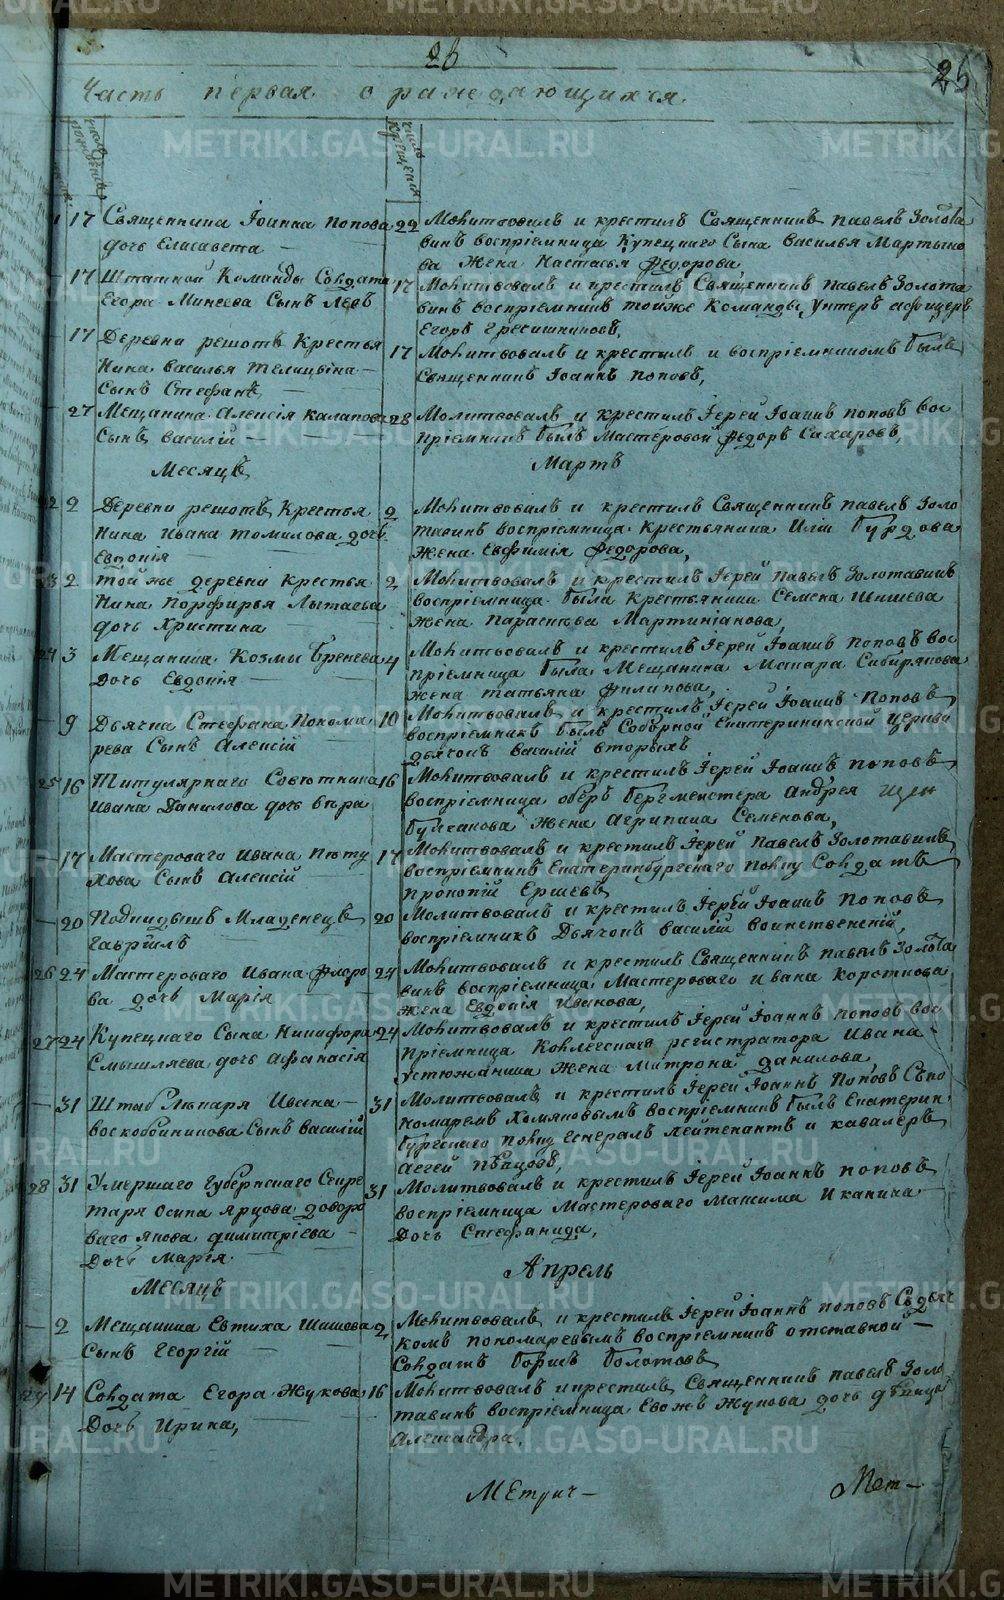 26
25
Часть первая о раждающихся
число рождения
число крещения
17 Священника Iоанна Попова
дочь Елисавета
22 Молитвовалъ и крестилъ Священникъ павелъ Золота
винъ воспріемница Купецкаго Сына Василья Мартыно
ва Жена Настасья Федорова
17 Штатной Команды Солдата
Егора Минеева Сынъ Левъ
17 Молитвовалъ и крестилъ Священникъ павелъ Золота
винъ воспріемникъ тойже Команды, Унтеръ афицеръ
Егоръ
17 Деревни решотъ Крестья
нина василья телицына
сынъ Стефанъ
17 Молитвовалъ и крестилъ и воспріемникомъ былъ
Священникъ Iоаннъ поповъ,
27 Мещанина Алексія
Сынъ василій
28 Молитвовалъ и крестилъ Iерей Iоаннъ поповъ вос
пріемникъ былъ мастеровой Федоръ Сахаровъ,
Месяцъ
Мартъ
2 Деревни решотъ Крестья
нина Ивана томилова дочь
Евдокія
2 Молитвовалъ и крестилъ Священникъ павелъ Золо
тавинъ воспріемница Крестьянина Иліи Бурдова
Жена Евфимія Федорова,
2 той же деревни крестья
нина Порфирья Лытаева
дочь Христина
2, Молитвовалъ и крестилъ Iерей Павелъ Золотавинъ
воспріемница была Крестьянина Семена Шишева
Жена Параскева Мартиніанова,
24 3 Мещанина Козмы Бренева
Дочь Евдокія
4 Молитвовалъ и крестилъ Iерей Iоаннъ поповъ вос
пріемница была Мещанина Макара Сибирякова
жена татьяна Филипова,
9 Дьячка Стефана Понома
рева Сынъ Алексій
10 Молитвовалъ и крестилъ Iерей Iоаннъ поповъ
воспріемникъ былъ Соборной Екатерининской церкви
дьячокъ василій вторыхъ
25 16 Титулярнаго Советника
Ивана Данилова дочь вѣра
16 Молитвовалъ и крестилъ Iерей Iоаннъ поповъ
воспріемница оберъ бергмейстера Андрея
Булганова Жена Агрипина Семенова,
17 Мастероваго Ивана Пету
хова Сынъ Алексій
17 Молитвовалъ и крестилъ Iерей Павелъ Золотавинъ
воспріемникъ Екатеринбургскаго полку Солдатъ
Прокопій Ершевъ
20 Подкидышъ Младенецъ
гавріилъ
20 Молитвовалъ и крестилъ Iерей Iоаннъ Поповъ
воспріемникъ Дьячокъ василій воинственскій,
26 24 Мастероваго Ивана Флоро
ва дочь Марія
24 Молитвовалъ и крестилъ Священникъ павелъ Золота
винъ воспріемница Мастероваго Ивана Короткова
жена Евдокія Иванова,
27 24 Купецкаго Сына Никифора
Смышляева дочь Афанасія
24 Молитвовалъ и крестилъ Iерей Iоаннъ поповъ вос
пріемница Коллегскаго регистратора Ивана
устюжанина Жена Матрона данилова
31 Штабъ Лѣкаря Ивана
воскобойникова Сынъ василій
31 Молитвовалъ и крестилъ Iерей Iоаннъ Поповъ Съпо
номаремъ Хомяковымъ воспріемникъ былъ Екатерин
бургскаго полку Генералъ лейтенантъ и кавалеръ
Аггей Пѣвцовъ,
28 31 Умершаго Губернскаго Секре
таря осипа Ярцова дворо
ваго якова Димитріева
Дочь Марія
31 Молитвовалъ и крестилъ Iерей Iоаннъ поповъ
воспріемница Мастероваго Максима Иканина
Дочь Стефанида,
Месяцъ
Апрель
2 Мещанина Евтиха Шишова
Сынъ Георгій
2, Молитвовалъ и крестилъ Iерей Iоаннъ поповъ Съдьяч
комъ пономаревымъ воспріемникъ отставной
Солдатъ борисъ болотовъ
29 14 Солдата Егора Жукова
Дочь Ирина,
16 Молитвовалъ и крестилъ Священникъ павелъ Золо
тавинъ воспріемница Евожъ Жукова дочь дѣвица
Александра,
МЕтрич
Мет
METRIKI.GASO-URAL.RU